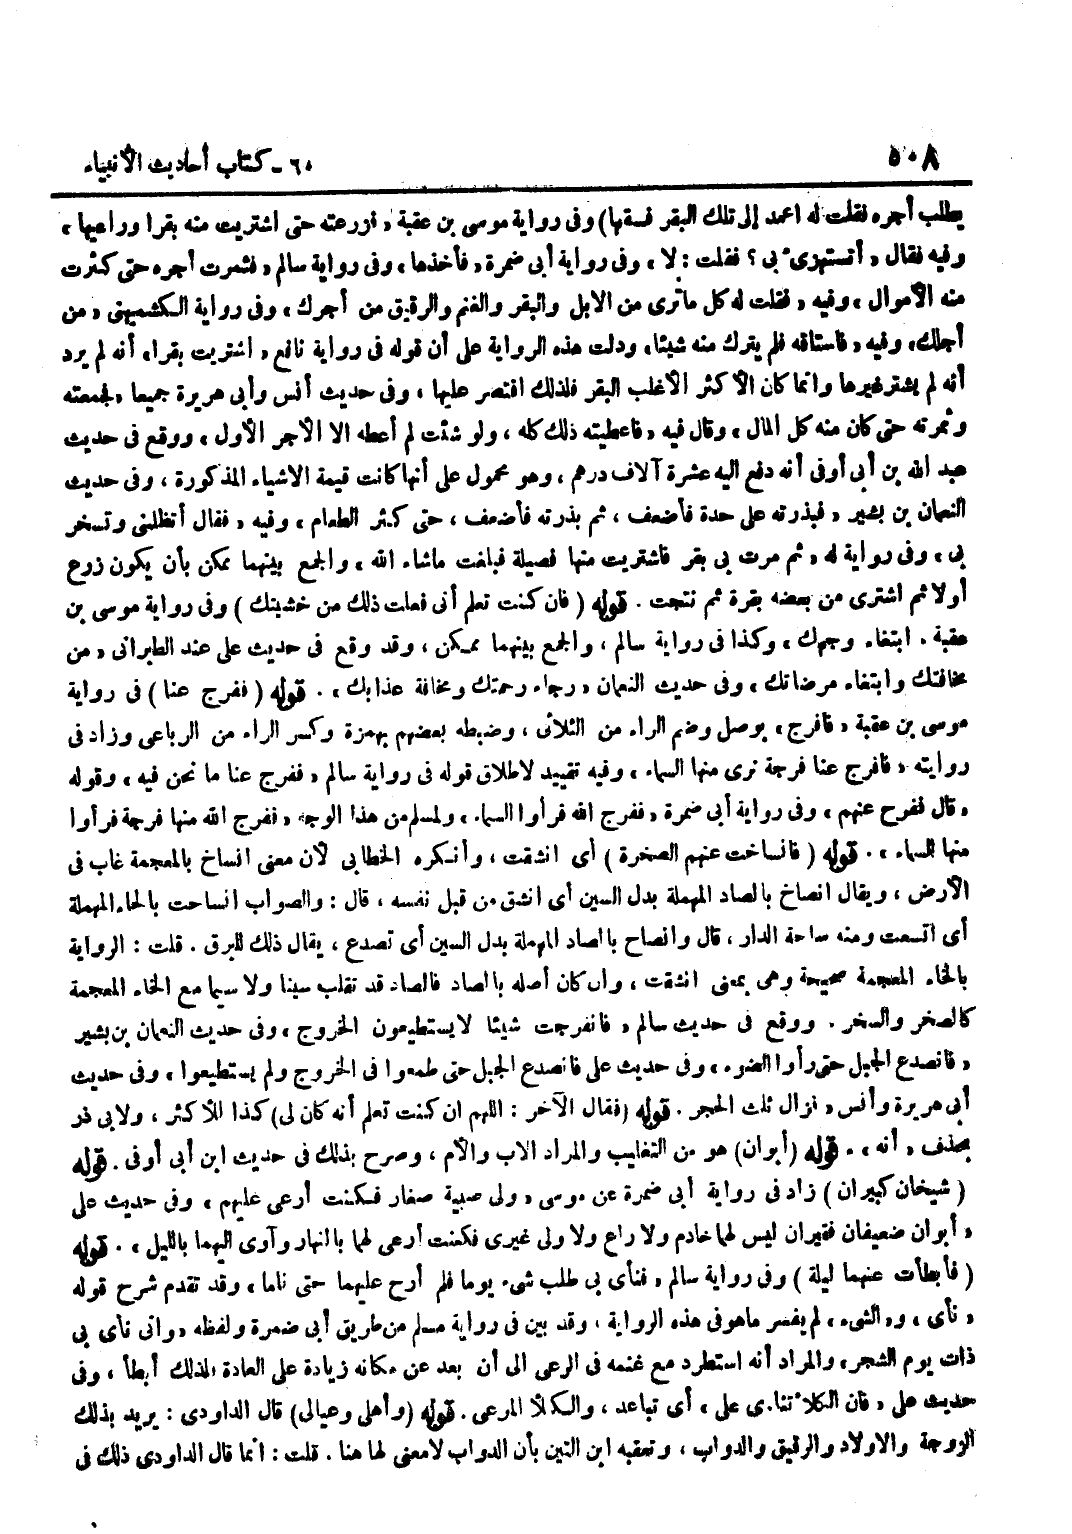 ٥٠٨
٦٠ - كتاب أحاديث الأنبياء
يطلب أجره فقلت له اعمد إلى تلك البقر فسقها) وفى رواية موسى بن عقبة « فزرعته حتى اشتريت منه بقرا وراعيها »
وفيه فقال « أتستهزئ بى ؟ فقلت : لا » وفى رواية أبى ضمرة « فأخذها » وفى رواية سالم « فثمرت أجره حتى كثرت
منه الأموال » وفيه « فقلت له كل ماترى من الابل والبقر والغنم والرقيق من أجرك » وفى رواية الكشميهنى « من
أجلك » وفيه « فاستاقه فلم يترك منه شيئا » ودلت هذه الرواية على أن قوله فى رواية نافع « اشتريت بقرا » أنه لم يرد
أنه لم يشتر غيرها وانما كان الأكثر الأغلب البقر فلذلك اقتصر عليها ، وفى حديث أنس وأبى هريرة جميعا « فجمعته
وثمرته حتى كان منه كل المال » وقال فيه « فاعطيته ذلك كله ، ولو شئت لم أعطه الا الأجر الأول » ووقع فى حديث
عبد الله بن أبى أوفى أنه دفع اليه عشرة آلاف درهم ، وهو محمول على أنها كانت قيمة الاشياء المذكورة ، وفى حديث
النعمان بن بشير « فبذرته على حدة فأضعف ، ثم بذرته فأضعف ، حتى كثر الطعام » وفيه « فقال أتظلمنى وتسخر
بى » وفى رواية له « ثم مرت بى بقر فاشتريت منها فصيلة فبلغت ماشاء الله » والجمع بينهما ممكن بأن يكون زرع
أولا ثم اشترى من بعضه بقرة ثم نتجت . قوله ( فان كنت تعلم أنى فعلت ذلك من خشيتك ) وفى رواية موسى بن
عقبة « ابتغاء وجهك » وكذا فى رواية سالم ، والجمع بينهما ممكن ، وقد وقع فى حديث على عند الطبرانى « من
مخافتك وابتغاء مرضاتك » وفى حديث النعمان « رجاء رحمتك ومخافة عذابك » . قوله ( ففرج عنا ) فى رواية
موسى بن عقبة « فافرج » بوصل وضم الراء من الثلاثى ، وضبطه بعضهم بهمزة وكسر الراء من الرباعى وزاد فى
روايته « فافرج عنا فرجة نرى منها السماء » وفيه تقييد لاطلاق قوله فى رواية سالم « ففرج عنا ما نحن فيه » وقوله
« قال ففرج عنهم » وفى رواية أبى ضمرة « ففرج الله فرأوا السماء » ولمسلم من هذا الوجه « ففرج الله منها فرجة فرأوا
منها السماء » . قوله ( فانساخت عنهم الصخرة ) أى انشقت ، وأنكره الخطابى لأن معنى انساخ بالمعجمة غاب فى
الأرض ، ويقال انصاخ بالصاد المهملة بدل السين أى انشق من قبل نفسه ، قال : والصواب انساحت بالحاء المهملة
أى اتسعت ومنه ساحة الدار ، قال وانصاح بالصاد المهملة بدل السين أى تصدع ، يقال ذلك للبرق . قلت : الرواية
بالخاء المعجمة صحيحة وهى بمعنى انشقت ، وان كان أصله بالصاد فالصاد قد تقلب سينا ولا سيما مع الخاء المعجمة
كالصخر والسخر . ووقع فى حديث سالم « فانفرجت شيئا لا يستطيعون الخروج » وفى حديث النعمان بن بشير
« فانصدع الجبل حتى رأوا الضوء » وفى حديث على فانصدع الجبل حتى طمعوا فى الخروج ولم يستطيعوا » وفى حديث
أبى هريرة وأنس « فزال ثلث الحجر . قوله (فقال الآخر : اللهم ان كنت تعلم أنه كان لى) كذا للأكثر ، ولابى ذر
بحذف « أنه » . قوله (أبوان) هو من التغليب والمراد الاب والأم ، وصرح بذلك فى حديث ابن أبى أوفى . قوله
( شيخان كبيران ) زاد فى رواية أبى ضمرة عن موسى « ولى صبية صغار فكنت أرعى عليهم » وفى حديث على
« أبوان ضعيفان فقيران ليس لهما خادم ولا راع ولا ولى غيرى فكنت أرعى لهما بالنهار وآوى اليهما بالليل » . قوله
( فأبطأت عنهما ليلة ) وفى رواية سالم « فنأى بى طلب شىء يوما فلم أرح عليهما حتى ناما » وقد تقدم شرح قوله
« نأى » و« الشىء » لم يفسر ماهو فى هذه الرواية ، وقد بين فى رواية مسلم من طريق أبى ضمرة ولفظه « وانى نأى بى
ذات يوم الشجر » والمراد أنه استطرد مع غنمه فى الرعى الى أن بعد عن مكانه زيادة على العادة فلذلك أبطأ ، وفى
حديث على « فان الكلأ تناءى على » أى تباعد ، والكلأ المرعى . قوله (وأهلى وعيالى) قال الداودى : يريد بذلك
الزوجة والاولاد والرقيق والدواب ، وتعقبه ابن التين بأن الدواب لامعنى لها هنا . قلت : انما قال الداودى ذلك فى